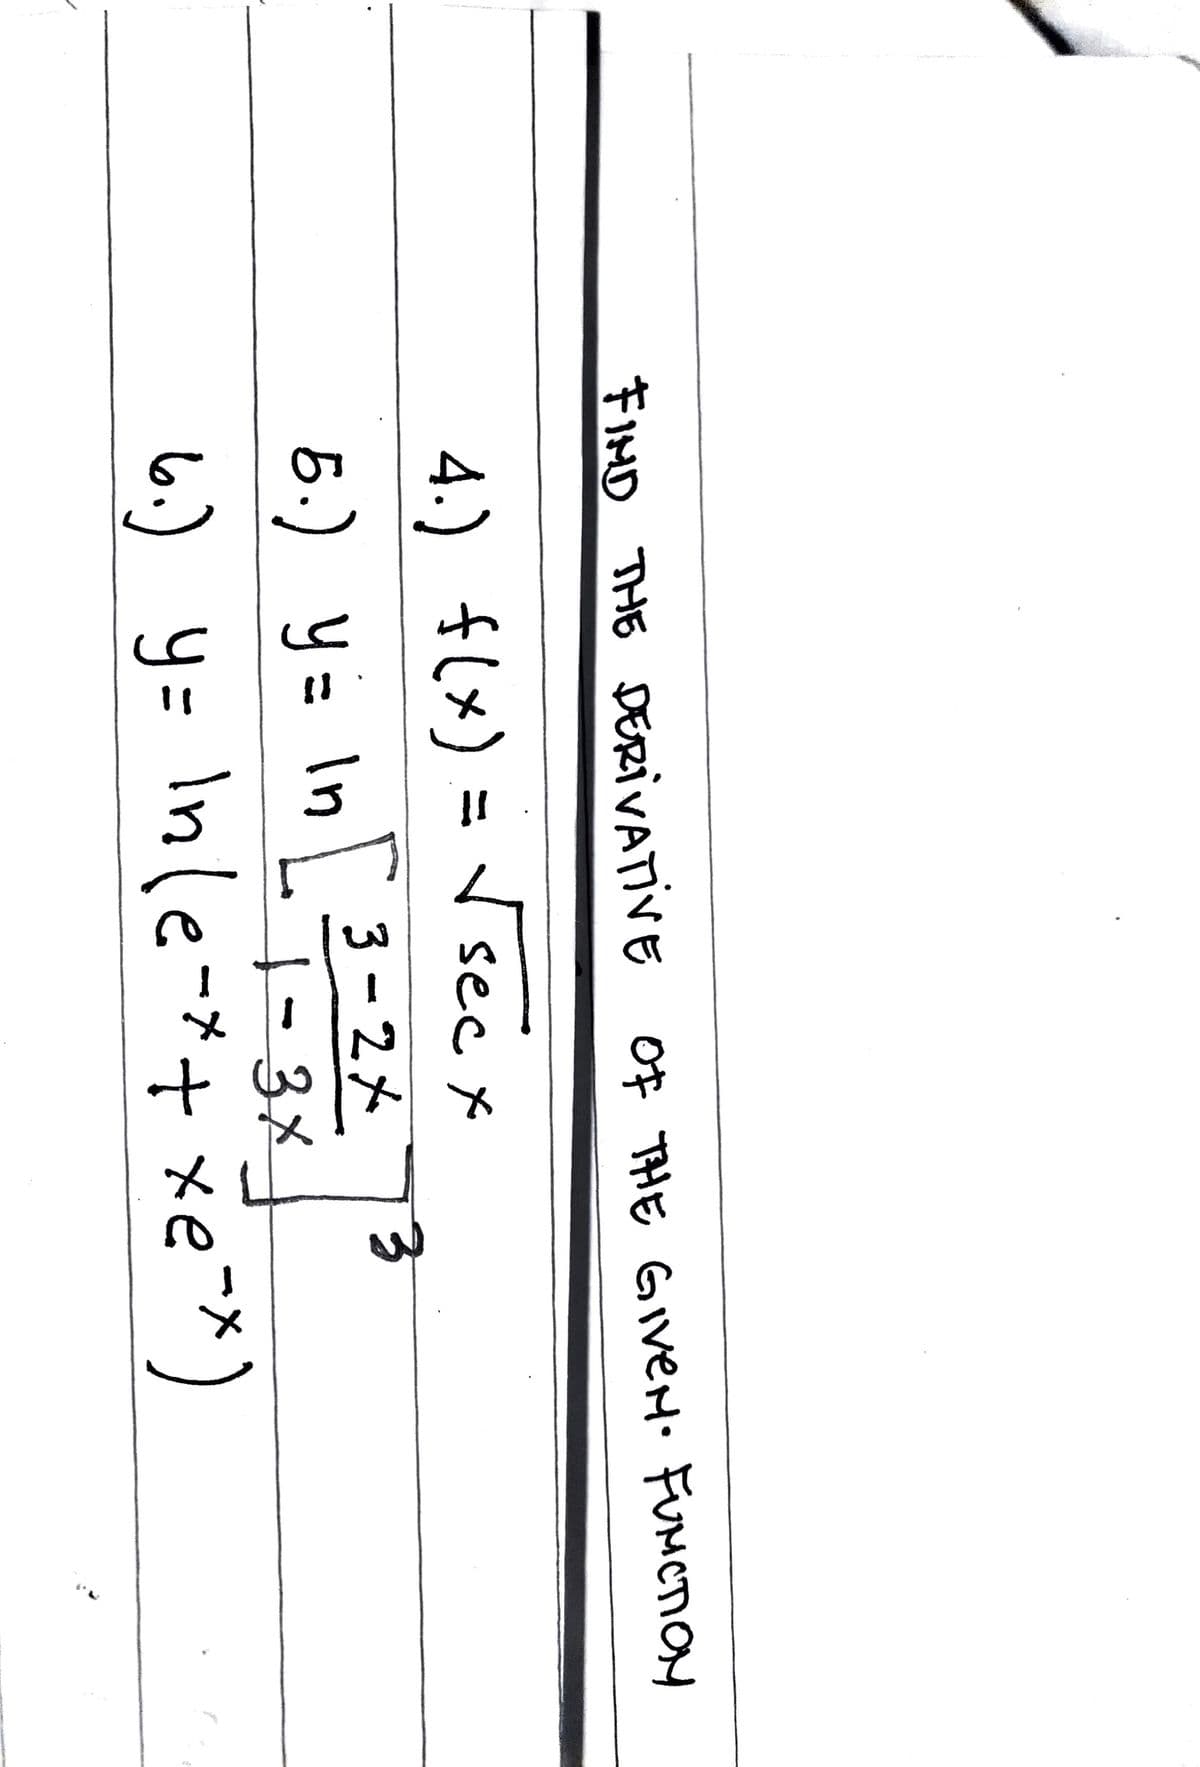 FIND THE DERIVATIVE OF THE GIVEN. FUNCTION
4.) f(x) = √sec x
5.) y = ln [3-2x / 1-3x]³
6.) y = ln(e⁻ˣ + xe⁻ˣ)